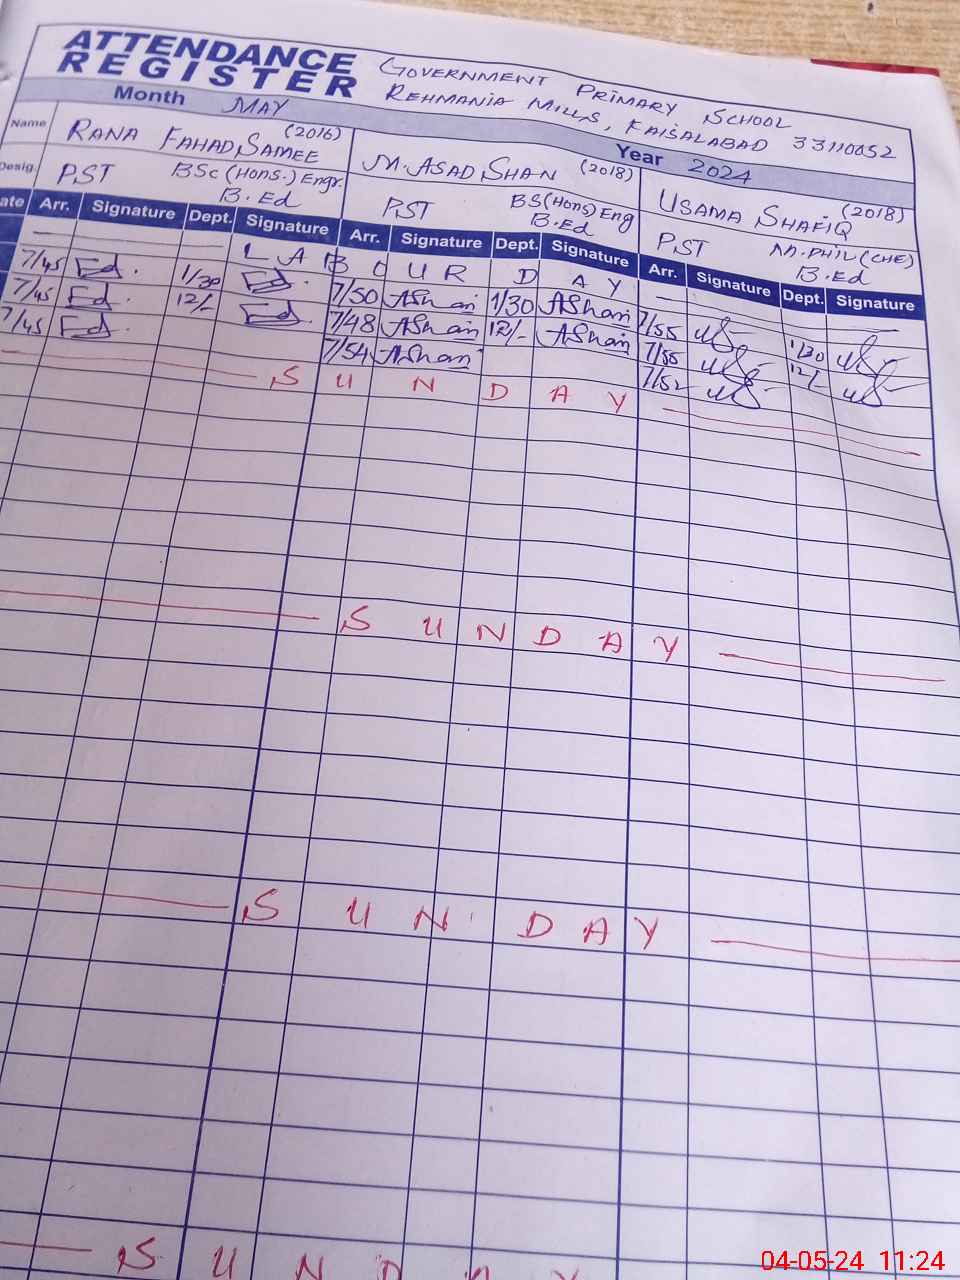 ATTENDANCE REGISTER
GOVERNMENT PRIMARY SCHOOL
REHMANIA MILLS, FAISALABAD 33110052
Month MAY Year 2024
Name RANA FAHAD SAMEE (2016) M. ASAD SHAN (2018) USAMA SHAFIQ (2018)
Desig. PST BSc (Hons.) Engr. B.Ed PST BS(Hons) Eng B.Ed PST M.PHIL (CHE) B.Ed
ate Arr. Signature Dept. Signature Arr. Signature Dept. Signature Arr. Signature Dept. Signature
LABOUR DAY
7/45 1/30 7/50 AShan 1/30 AShan 7/55 1/30
7/45 12/- 7/48 AShan 12/- AShan 7/55 12/-
7/45 7/54 AShan 7/52
SUNDAY
SUNDAY
SUNDAY
SUNDAY
04-05-24 11:24